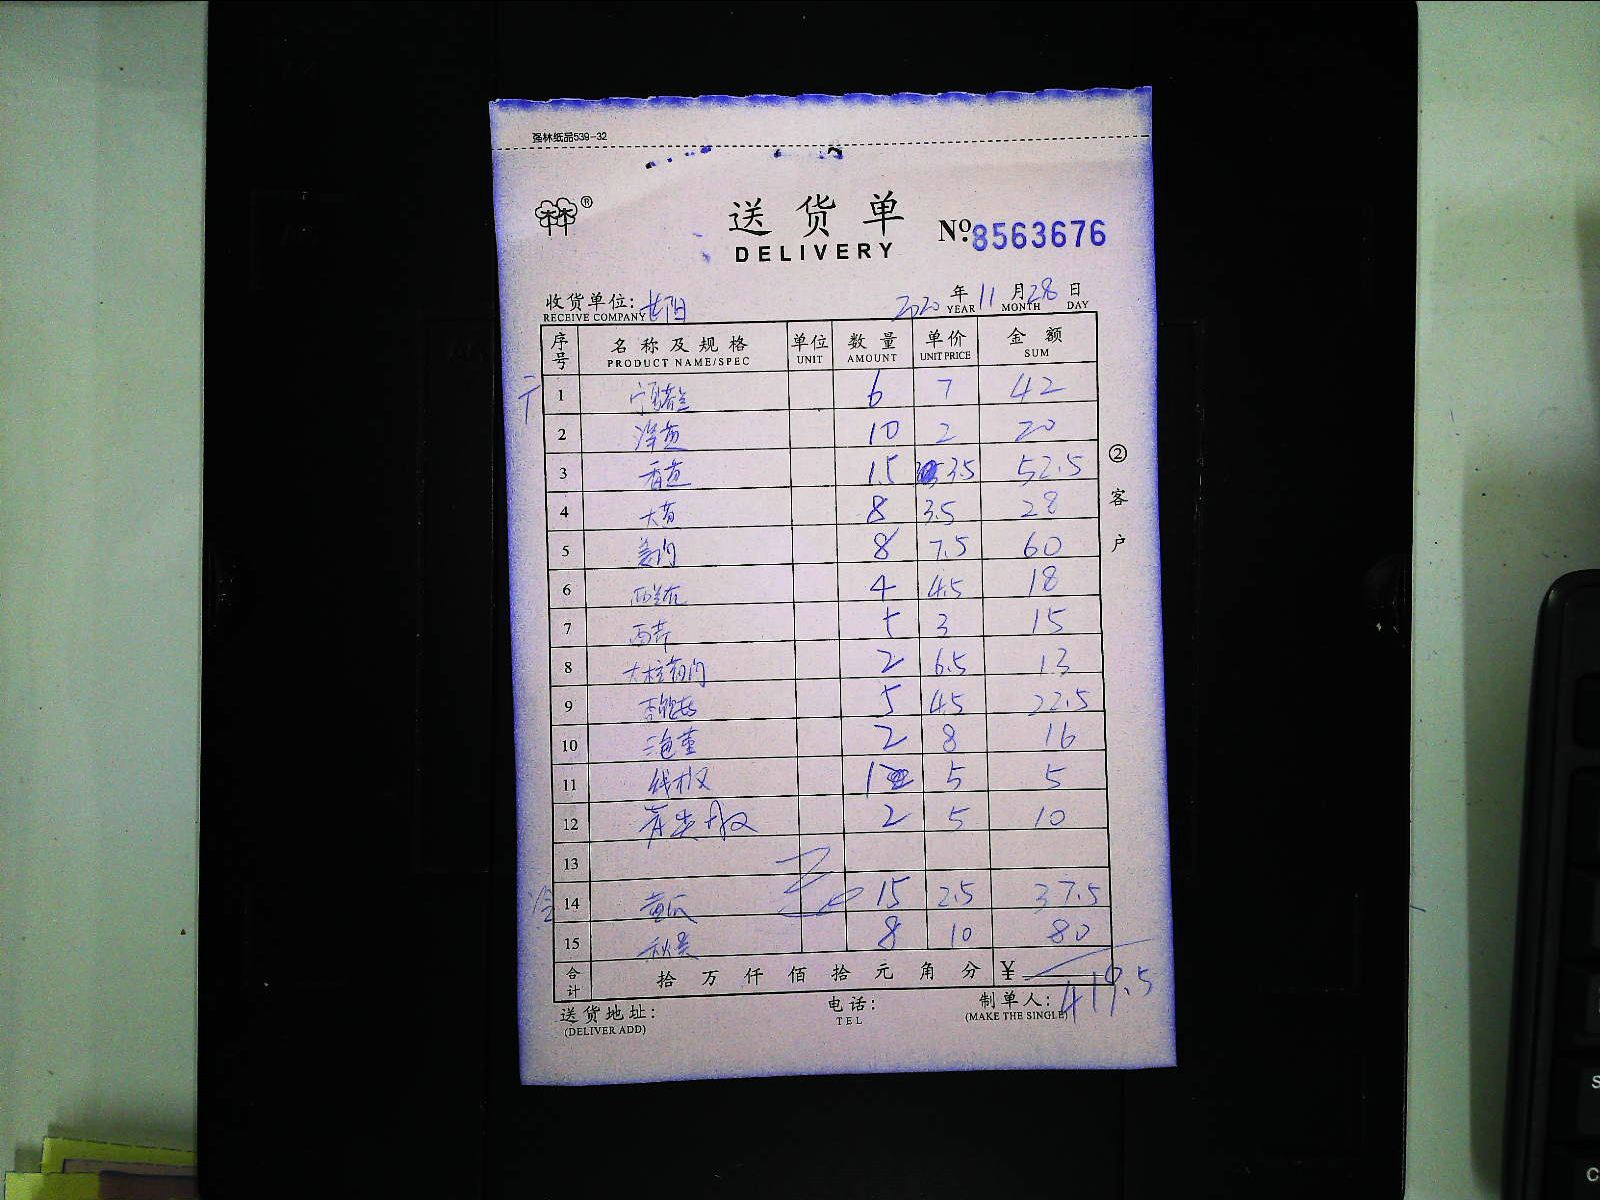 强林纸品539-32
林林®
送货单
DELIVERY
№ 8563676
收货单位:
RECEIVE COMPANY
2020 年 11 月 28 日
YEAR MONTH DAY
序号 名称及规格 单位 数量 单价 金额
PRODUCT NAME/SPEC UNIT AMOUNT UNIT PRICE SUM
1 6 7 42
2 10 2 20
3 香芹 15 3.5 52.5
4 8 3.5 28
5 8 7.5 60
6 西兰花 4 4.5 18
7 西芹 5 3 15
8 2 6.5 13
9 5 4.5 22.5
10 2 8 16
11 线椒 1 5 5
12 青尖椒 2 5 10
13
14 黄瓜 15 2.5 37.5
15 秋葵 8 10 80
合计 拾万仟佰拾元角分 ¥ 419.5
②客户
送货地址: 电话: 制单人:
(DELIVER ADD) TEL (MAKE THE SINGLE)